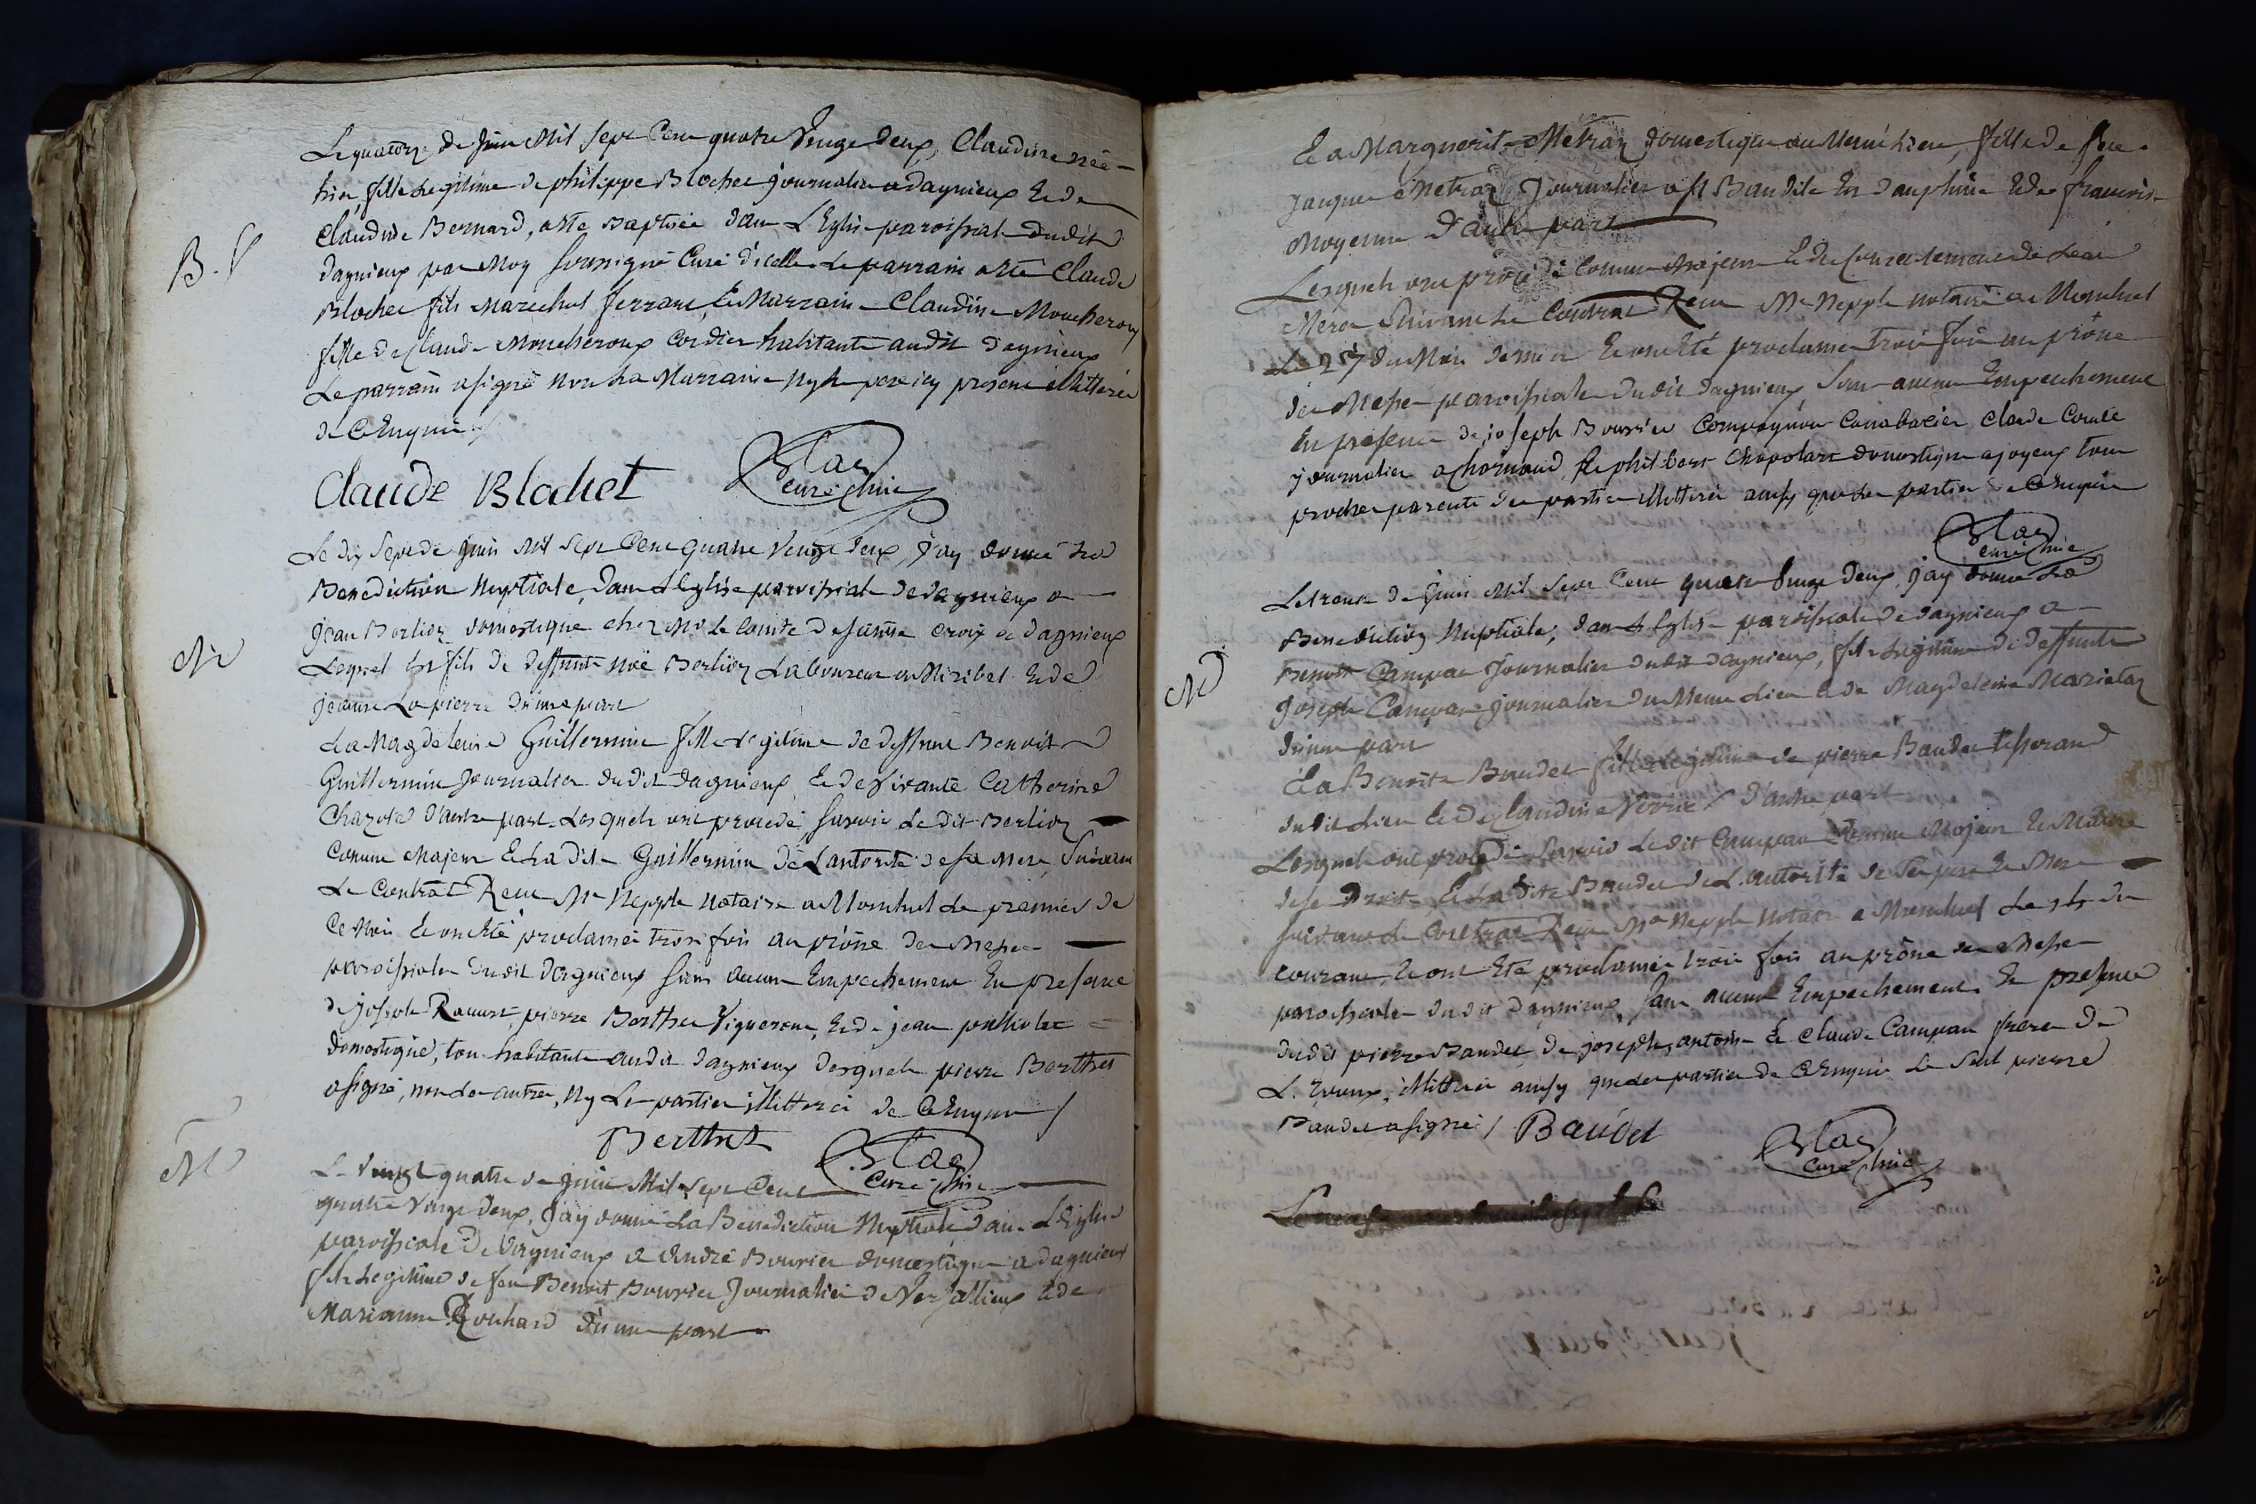 Le quatorze de juin Mil Sept Cent quatre Vingt deux, Claudine née
hier, fille Legitime de philippe Blochet journalier a dagnieux Et de
B. V
Claudine Bernard, a été Baptisée dans L'Eglise paroissiale dudit
dagnieux par Moy soussigné Curé d'icelle Le parrain a été Claude
Blochet fils Marechal ferrant, la Marraine Claudine Moucheroux
fille de Claude Moucheroux Cordier habitante audit dagnieux
Le parrain a signé non La Marraine Ny Le pere icy present illitteré
de Ce Enquis /
Claude Blochet
curé
Le dix Sept de juin Mil Sept Cent quatre Vingt deux, j'ay donné La
Benediction Nuptiale, dans L'Eglise paroissiale de dagnieux a
M
jean Berlioz domestique chez Mr Le Comte de sainte Croix a dagnieux
Lequel Est fils de deffunts Noë Berlioz Laboureur a Miribel Et de
jeanne Lapierre d'une part
La Magdeleine Guillermin fille Legitime de deffunt Benoit
Guillermin journalier dudit dagnieux, Et de Vivante Catherine
d'autre part. Lesquels ont procedé sçavoir Le dit Berlioz
Comme Majeur Et La dite Guillermin de L'autorité de sa Mere, suivant
Le Contrat Reçu Me Nepple Notaire a Montluel Le premier de
Ce Mois Et ont Eté proclamés trois fois au prône des Messes
paroissiales dudit dagnieux sans aucun Empechement En presence
de joseph pierre Berthet Vigneron, Et de jean
domestique, tous habitants audit dagnieux desquels pierre Berthet
a signé, non Les autres, Ny Les parties illitterés de Ce Enquis /
Berthet
curé
M
Le Vingt quatre de juin Mil Sept Cent
quatre Vingt deux, J'ay donné La Benediction Nuptiale dans L'Eglise
paroissiale de dagnieux a André Bouvier domestique a dagnieux
fils Legitime de feu Benoit Bouvier Journalier de Et de
Marianne d'une part
Et a Marguerite Metraz domestique au Meme Lieu, fille de feu
jacques Metraz journalier a St Baudile En dauphiné Et de françoise
Moyenne D'autre part
Lesquels ont procedé Comme Majeurs Et du Consentement de Leur
Mere Suivant Le Contrat Reçu Me Nepple Notaire a Montluel
Le 27 du Mois dernier Et ont Eté proclamés trois fois au prône
des Messes paroissiales dudit dagnieux, Sans aucun Empechement
En presence de joseph Bouvier Compagnon Claude Comte
journalier a Et philibert domestique a joyeux tous
proches parents des parties illitterés ainsy que Les parties de Ce Enquis
curé
Le trente de juin Mil Sept Cent quatre Vingt deux j'ay donné La
Benediction Nuptiale, dans L'Eglise paroissiale de dagnieux a
M
Benoit Campan Journalier dudit dagnieux, fils Legitime de deffunts
joseph Campan journalier du Meme Lieu Et de Magdeleine
d'une part
Et a Benoite Baudet fille Legitime de pierre Baudet tisserand
dudit Lieu Et de Claudine / d'autre part
Lesquels ont procedé Sçavoir Le dit Campan Comme Majeur Et Maitre
de se Droits Et La dite Baudet de L'autorité de Ses pere Et Mere
suivant Le Contrat Reçu Me Nepple Notaire a Montluel Le du
courant, Et ont Eté proclamés trois fois au prône des Messes
paroissiales dudit dagnieux, sans aucun Empechement. En presence
dudit pierre Baudet, de joseph, antoine Et Claude Campan freres de
L'Epoux, illitterés ainsy que Les parties de Ce Enquis Le Seul pierre
Baudet a signé / Baudet
curé